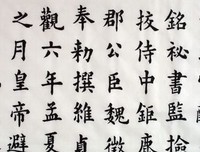 銘祕書監撿
挍侍中鉅鹿
郡公臣魏徵
奉勑撰維貞
觀六年孟夏
之月皇帝避